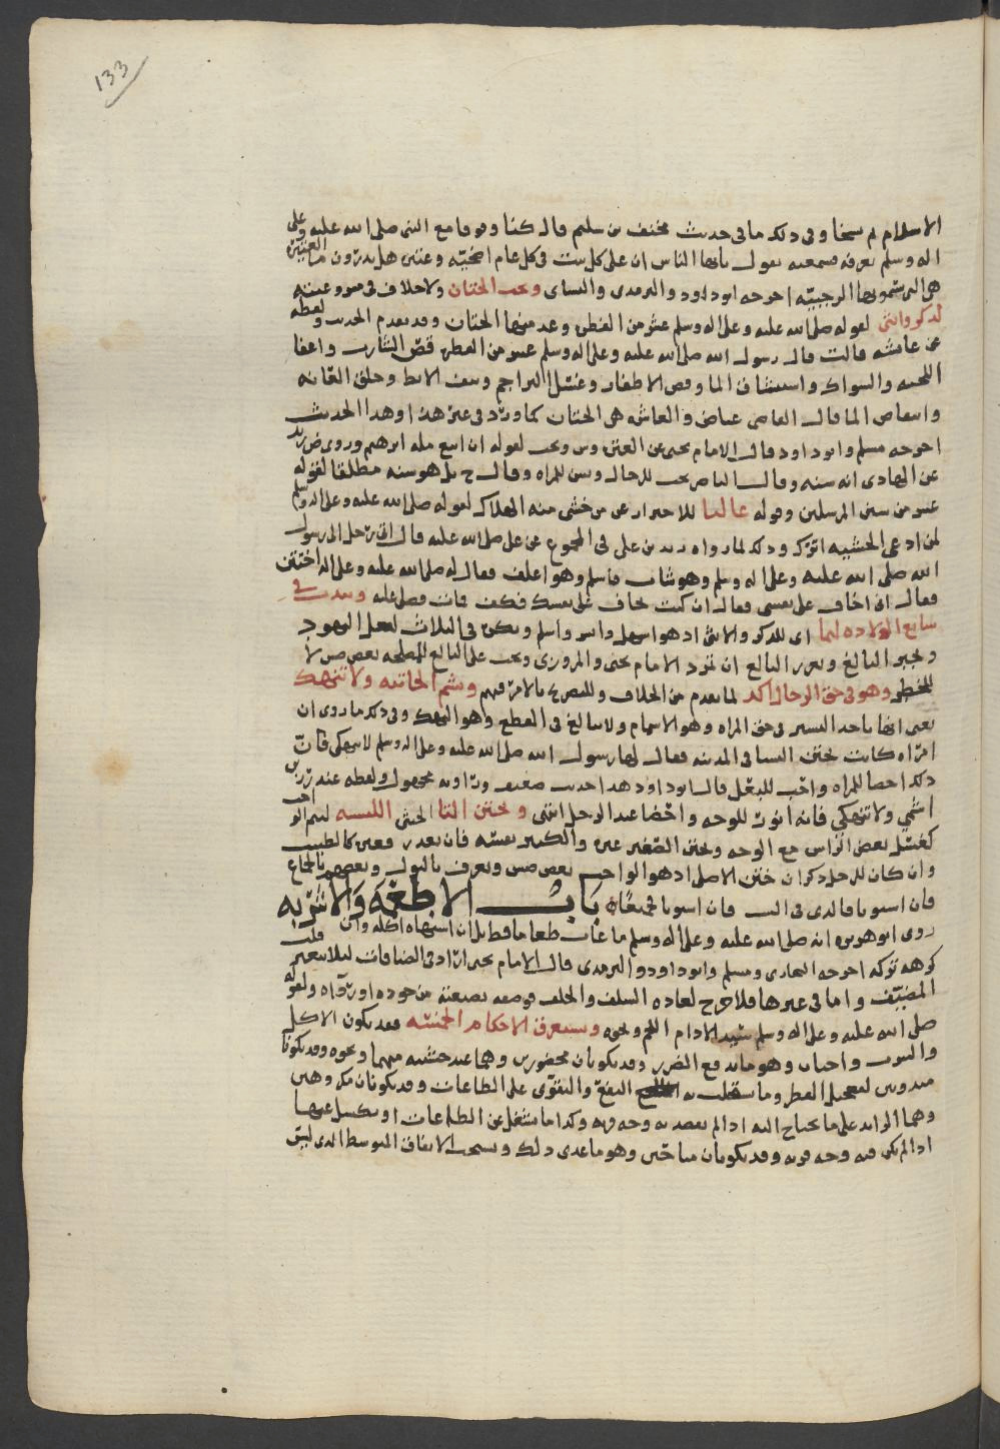 133
الاسلام ثم نسخا وفى ذلك ما فى حديث مخنف بن سليم قال كنا وقوفا مع النبى صلى الله عليه وعلى
اله وسلم بعرفه فسمعته يقول يايها الناس ان على كل بيت فى كل عام اضحيّه وعتيره هل تدرون ما العتيره
هى التى تسمونها الرجبيّه اخرجه ابو داود والترمدى والنساى ويجب الختان ولا خلاف فى مشروعيته
لدكر وانثى لقوله صلى الله عليه وعلى اله وسلم عشر من الفطره وعد منها الختان وقد تقدم الحديث ولفظه
عن عائشه قالت قال رسول الله صلى الله عليه وعلى اله وسلم عشر من الفطره قصّ الشارب واعفا
اللحيه والسواك واستنشاق الما وقص الاظفار وغسْل البراجم ونتف الابط وحلق العَانه
وانتقاص الما قال القاضى عياض والعاشره هى الختان كما ورَد فى غير هذا وهدا الحديث
اخرجه مسلم وابو داود قال الامام يحيى عن العتره وش ويجب لقوله ان اتبع مله ابرهيم وروى ض زيد
عن الهادى انه سنه وقال الناصر يجب للرجال ويسن للمراه وقال ح بل هو سنه مطلقا لقوله
عشر من سنن المرسلين وقوله غالبا للاحتراز عن من خشى منه الهلاك لقوله صلى الله عليه وعلى اله وسلم
لمن ادعى الخشيه اتركه ودلك لما رواه زيد بن على فى المجموع عن على صلى الله عليه قال اتى رجل الى رسول
الله صلى الله عليه وعلى اله وسلم وهو شاب فاسلم وهو اغلف فقال له صلى الله عليه وعلى اله اختتن
فقال انى اخاف على نفسى فقال ان كنت تخاف على نفسك فكف فمات فصلى عليه ويندب فى
سابع الولاده لهما اى للدكر والانثى اد هو اسهل وايسر واسلم ويكره فى الثلاث لفعل اليهود
ويجبر البالغ ويعزر البالغ ان تمرد الامام يحيى والمروزى ويجب على البالغ
للخطر وهو فى حق الرجال اكد لما تقدم من الخلاف وللتصريح بالامر فيهم وتشم الخاتنه ولا تنهك
يعنى انها تاخذ اليسير فى حق المراه وهو الاشمام ولا تبالغ فى القطع وهو النهك وفى دلك ما روى ان
امراه كانت تختن النسا فى المدينه فقال لها رسول الله صلى الله عليه وعلى اله وسلم لا تنهكى فان
دلك احضا للمراه واحب للبعل قال ابو داود هدا حديث ضعيف وراويه مجهول ولفظه عند رزين
اشمّي ولا تنهكى فانه انور للوجه واحْضا عند الرجل انتهى ويختن الخنثى اللبسه
كغسل بعض الراس مع الوجه ويختن الصّغير غيره والكبير نفسه فان تعدر فغيره كالطبيب
وان كان للرجل دكران ختن الاصلى اد هو الواجب ويعرف بالبول وبعضهم بالجماع
فان استويا فالدى فى فان استويا
باب الاطعمَة وَالاشْرِبه
روى ابو هريره انه صلى الله عليه وعلى اله وسلم ما عاب طعاما قط بل ان اشتهاه اكله وان
كرهه تركه اخرجه البخارى ومسلم وابو داود والترمدى قال الامام يحيى ارَاد فى الضيافات لئلا يتغير
المضيّف واما فى غيرها فلا حرج لعاده السلف والخلف
صلى الله عليه وعلى اله وسلم سيد الادام اللحم ونحوه ويتعرف الاحكام الخمسَه فقد يكون الاكل
والشرب واجبان وهو ما يدفع الضرر وقد يكونان محضورين وهما عند خشيه منهما ونحوه وقد يكونا
مندوبين لتعجيل الفطر النفع والتقوّى على الطاعات وقد يكونان مكروهين
وهما الزايد على ما يحتاج اليه ادا لم يقصد به وجه قربه وكدا ما شغل عن الطاعات او يكسل عنها
ادا لم يكن فيه وجه قربه وقد يكونان مباحَين وهو ما عدى دلك ويستحب الانفاق المتوسط الدى ليسَ